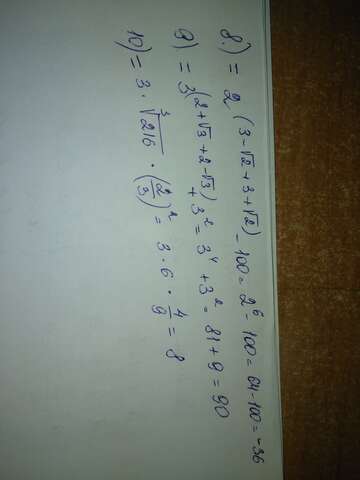 8.) = 2^(3-√2+3+√2) - 100 = 2^6 - 100 = 64-100 = -36
9) = 3^(2+√3+2-√3) + 3^2 = 3^4 + 3^2 = 81 + 9 = 90
10) = 3 · ∛216 · (2/3)^2 = 3 · 6 · 4/9 = 8